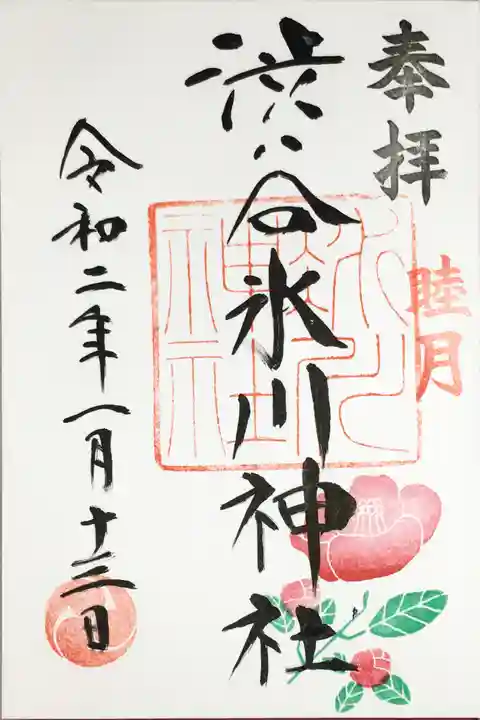 奉拝
睦月
渋谷氷川神社
氷川
神社
令和二年一月十三日